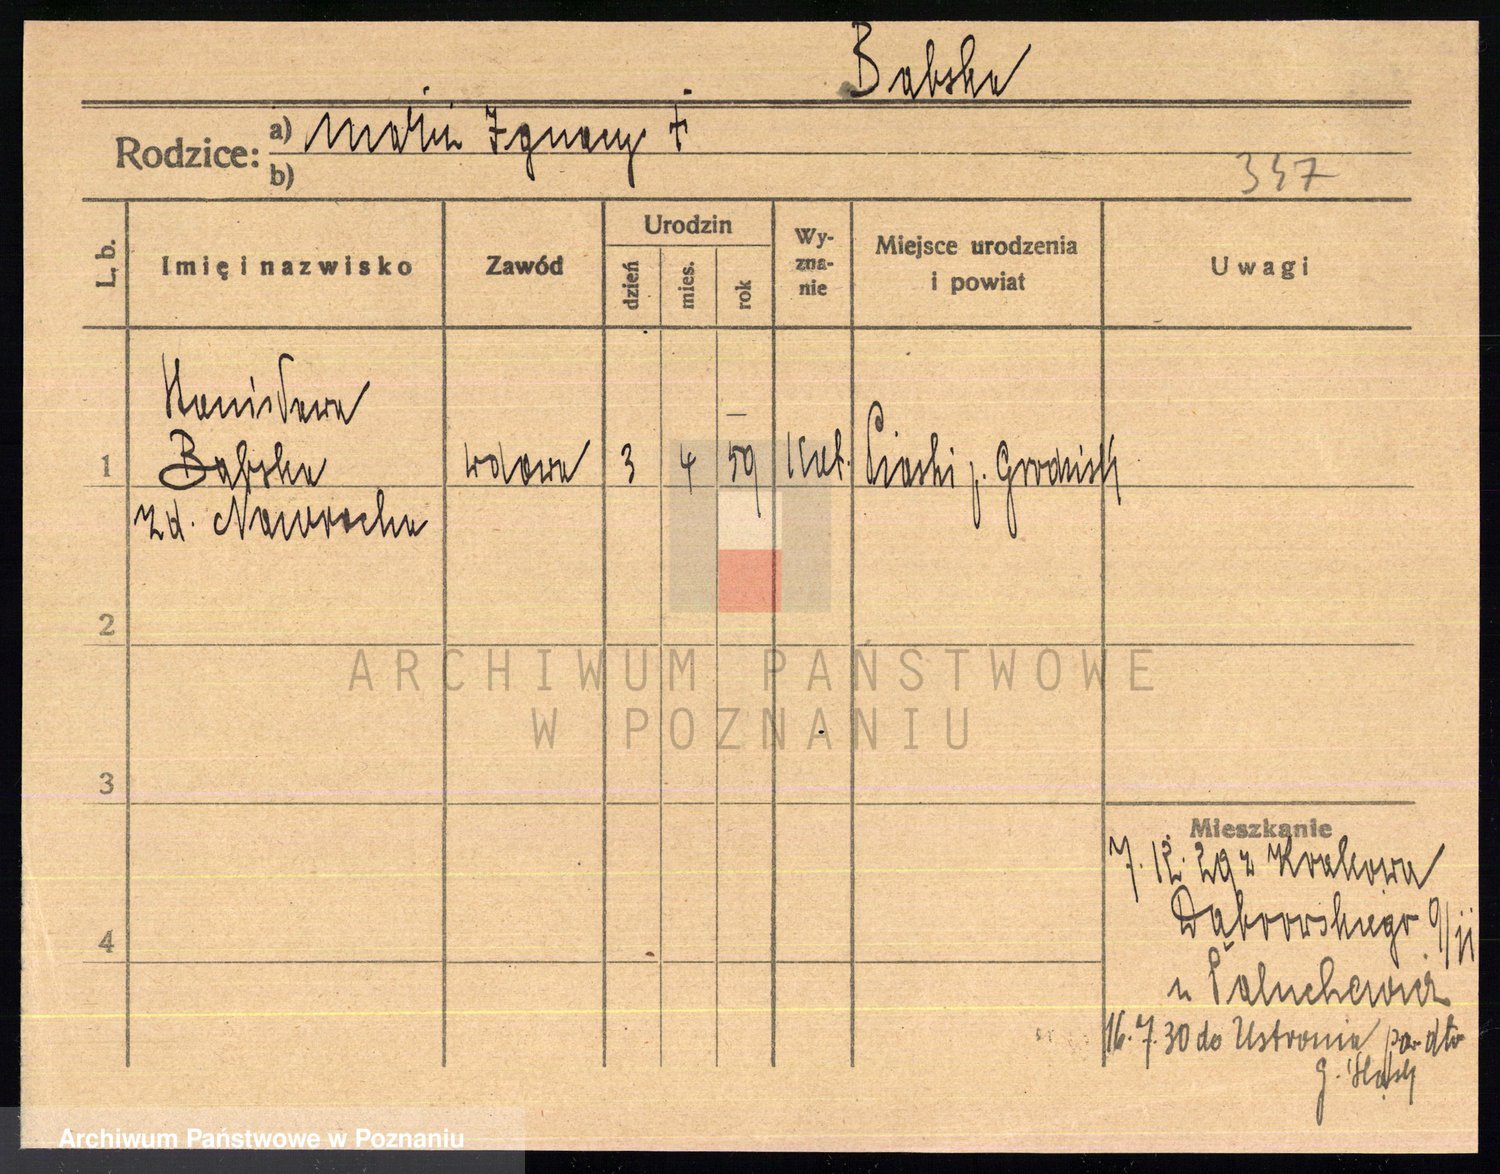 Bąbska
Rodzice: a) Ignacy †
b)
347
L. b. Imię i nazwisko Zawód Urodzin dzień mies. rok Wy-zna-nie Miejsce urodzenia i powiat Uwagi
Stanisława
1 Bąbska wdowa 3 4 59 Kat. Piaski p. Grodzisk
zd. Nawrocka
2
ARCHIWUM PAŃSTWOWE
W POZNANIU
3
Mieszkanie
7.12.29 z Krakowa
4 Dąbrowskiego
u
16.7.30 do Ustronia
G. Śląsk
Archiwum Państwowe w Poznaniu